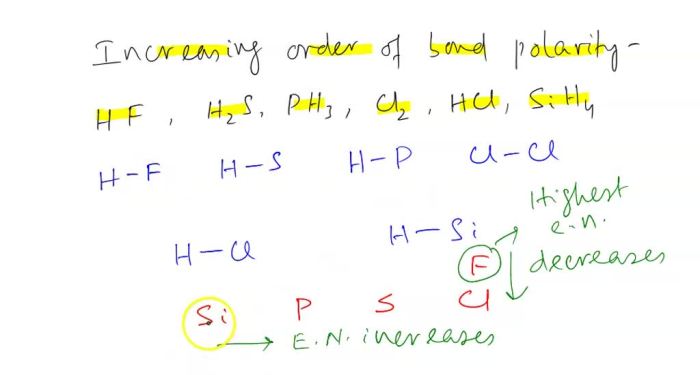 Increasing order of bond polarity-
HF, H₂S, PH₃, Cl₂, HCl, SiH₄
H-F H-S H-P Cl-Cl
Highest
e.n.
H-Cl H-Si
F → decreases
Si P S Cl
→ E.N. increases